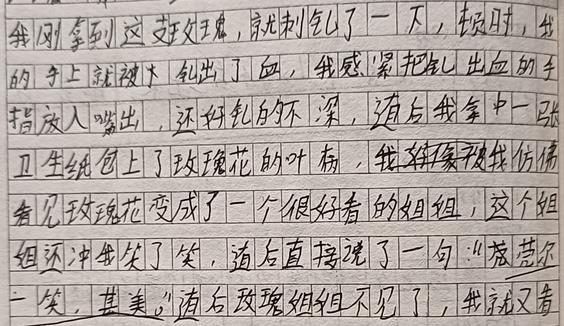 我刚拿到这支玫瑰，就刺轧了一下，顿时，我
的手上就被大轧出了血，我感紧把轧出血的手
指放入嘴出，还好轧的不深，道后我拿中一张
卫生纸包上了玫瑰花的叶柄，我好像被我仿佛
看见玫瑰花变成了一个很好看的姐组，这个姐
组还冲我笑了笑，道后直接说了一句：“蔻莞尔
一笑，甚美。”道后玫瑰姐组不见了，我就又看